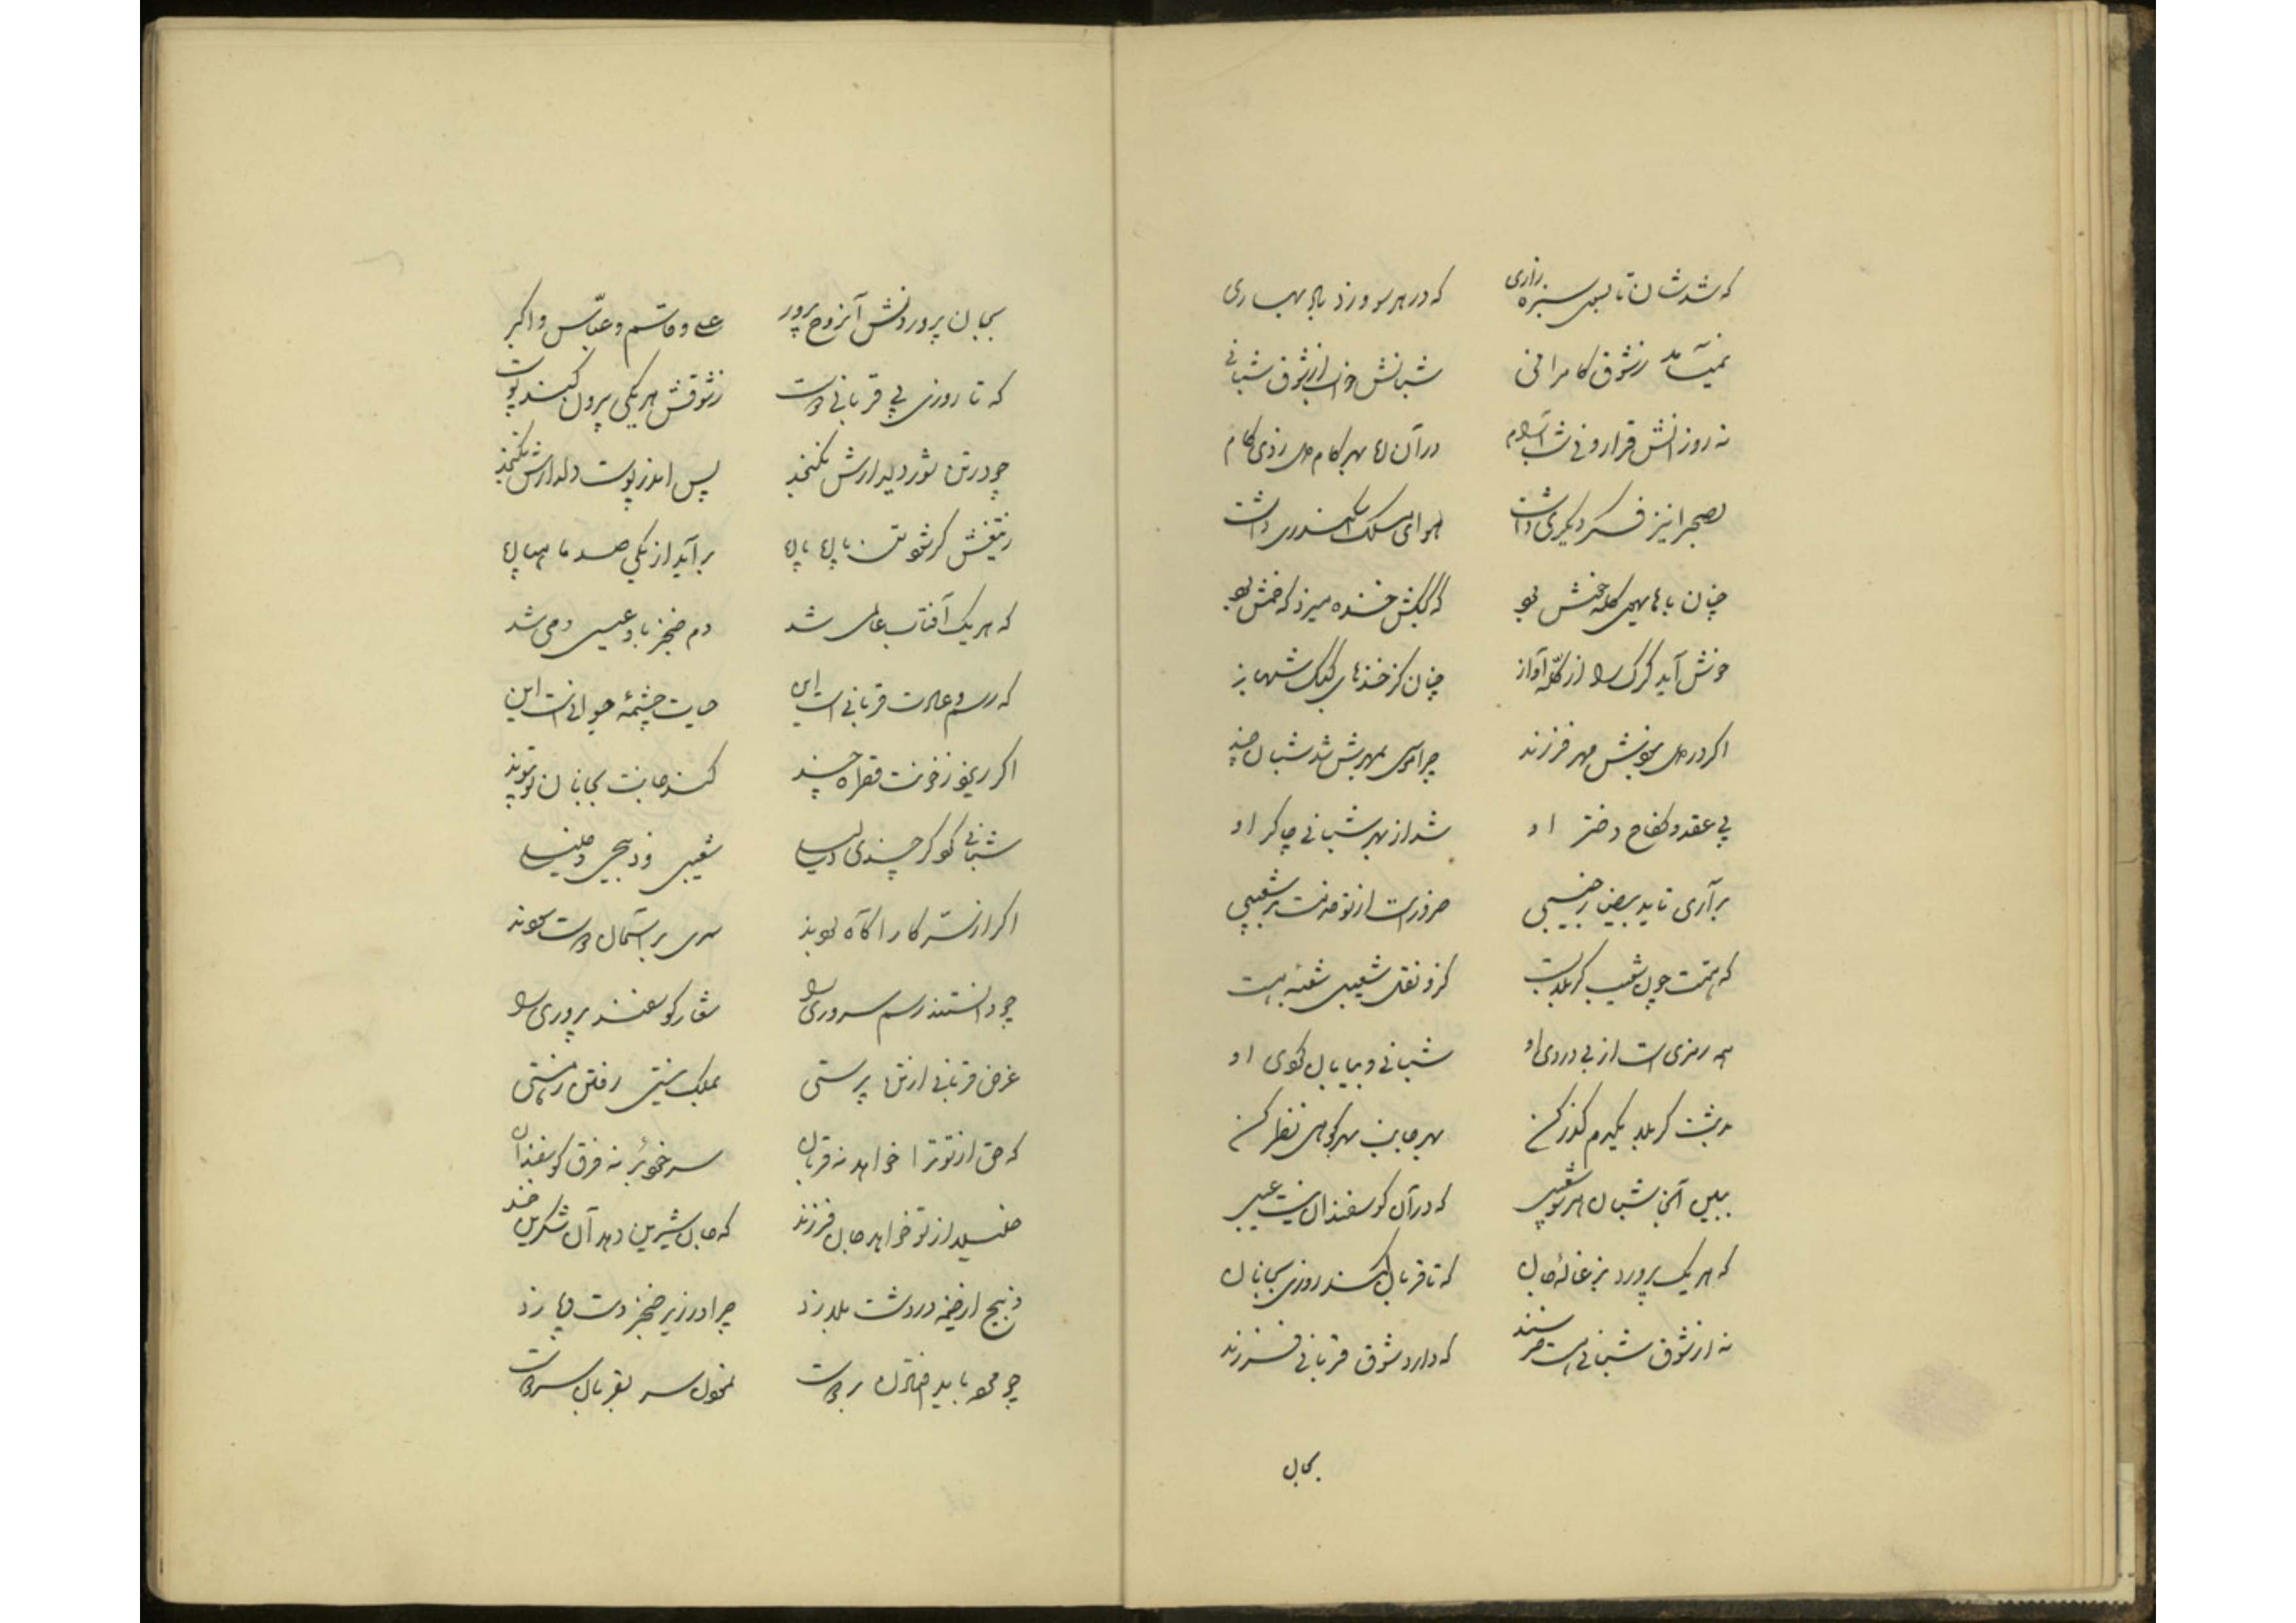 که شد شان تا بسوی سبزه زاری که در هر سو وزد باد بهاری
نمیآمد ز شوق کامرانی شبانش خواب از شوق شبانی
نه روز انش قرار و نی شب آرام در آن بهر کام دل زدی کام
بصحرا نیز فکر دیگری داشت هوای ملک اسکندری داشت
چنان با های هی کله خوش بود که کبکش خنده میزد که خمش بود
خوش آید گرگ را از کله آواز چنان کز خندهای کبک شهباز
اگر در دل نبودش مهر فرزند چرا موسی بمهرش شد شبان چند
پی عقد و نکاح دختر او شد از بهر شبانی چاکر او
برآری تا ید بیضا ز جیبی ضرور است از تو خدمت بر شعیبی
که همت چون شعیب کربلا بست کزو نقل شعیبی شعبه هست
همه رمزی است از بی دردی او شبانی و بیابان کوی او
بدشت کربلا یکدم گذر کن بهر جانب بهر کوهی نظر کن
ببین آنجا شبان هر سو شعیبی که در آن کوسفندان نیست عیبی
که هر یک پرورد بزغالهٔ جان که تا قربان کند روزی بجانان
نه از شوق شبانی است خرسند که دارد شوق قربانی فرزند
بجان
بجان پروردنش آنروح پرور علی و قاسم و عباس و اکبر
که تا روزی پی قربانی دوست ز شوقش هر یکی بیرون کند پوست
چو در تن شور دیدارش نکنجد پس اندر پوست دلدارش نکنجد
ز تیغش کر شود تن پاره پاره برآید از یکی صد ماه پاره
که هر یک آفتاب عالمی شد دم خنجر باو عیسی دمی شد
که رسم و عادت قربانی است این حیات چشمهٔ حیوانی است این
اگر ریزد ز خونت قطره چند کند جانت بجانان تو پیوند
شبانی کو کر چندی شعیبی و ذبیحی و خلیلی
اگر از سر کار آگاه بودند سری بر آستان دوست سودند
چو دانستند رسم سروری را شعار کوسفند پروری را
غرض قربانی از تن پرستی بملک نیستی رفتن ز هستی
که حق از تو ترا خواهد نه قربان سر خود بر نه فرق کوسفندان
خلیلا از تو خواهد جان فرزند که جان شیرین دهد آن شکرین خند
ذبیح ار خیمه در دشت بلا زد چرا در زیر خنجر دست و پا زد
چو محو باید افتادن بر دوست بخون سر بقربان سر دوست